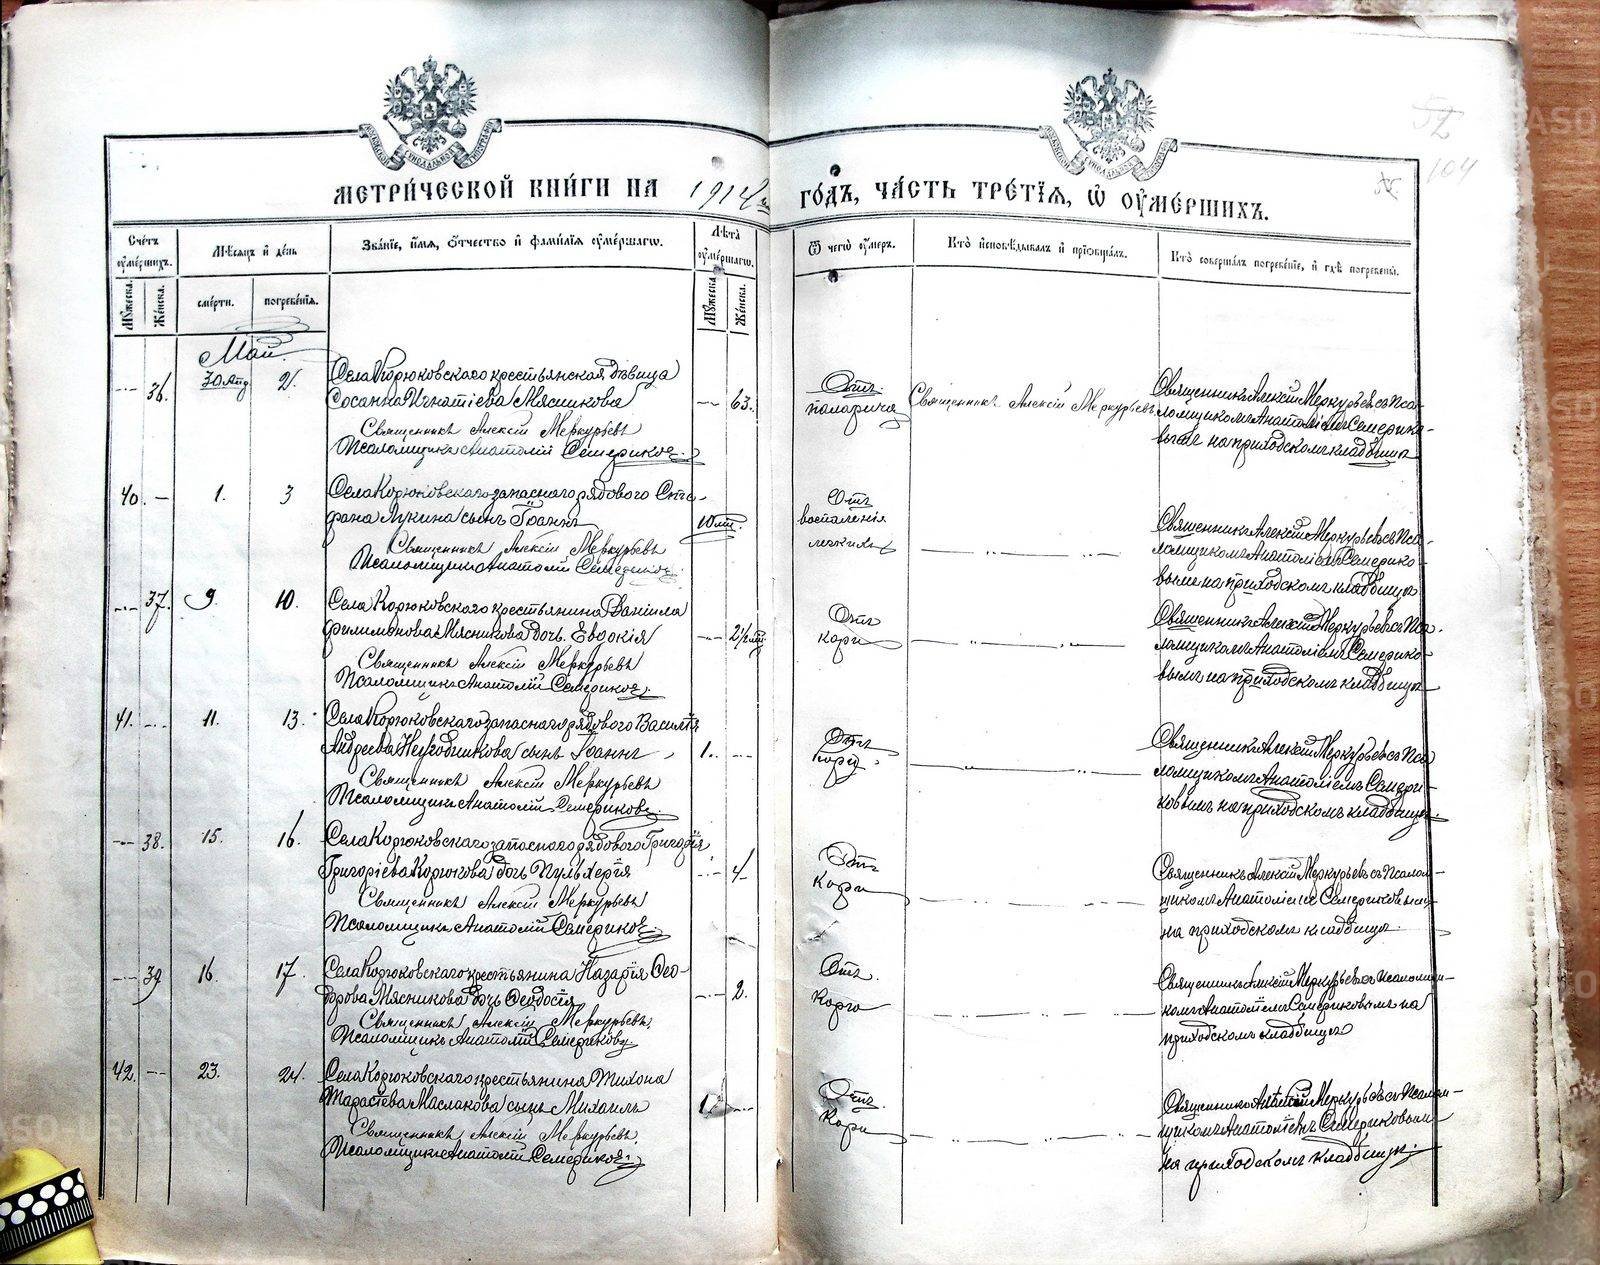 МЕТРИ́ЧЕСКОЙ КНИ́ГИ НА 1914
ГО́ДЪ, ЧА́СТЬ ТРЕ́ТІЯ, Ѡ ОУМЕ́РШИХЪ.
104
Сче́тъ оуме́ршихъ.
Му́жеска.
Же́нска.
Мѣ́сяцъ и де́нь
сме́рти.
погребе́нія.
Зва́ніе, и́мя, о́тчество и фами́лія оуме́ршагѡ.
Лѣ́та оуме́ршагѡ.
Му́жеска
Же́нска.
Ѿ чегѡ̀ оу́меръ.
Кто̀ исповѣ́дывалъ и прїѡбща́лъ.
Кто̀ соверша́лъ погребе́ніе, и гдѣ̀ погребе́ны.
Май.
36. 30 Апр 2.
Села Корюковскаго крестьянская дѣвица
Сосанна Игнатіева Мясникова
63.
Священникъ Алексій Меркурьевъ
Псаломщикъ Анатолій Семериков.
Отъ
паларича
Священникъ Алексій Меркурьевъ
Священникъ Алексій Меркурьевъ съ Пса-
ломщикомъ Анатоліемъ Семерико-
вымъ на приходскомъ кладбищѣ
40. — 1. 3
Села Корюковскаго запаснаго рядового Сте-
фана Лукина сынъ Іоаннъ
10 м.
Священникъ Алексій Меркурьевъ
Псаломщикъ Анатолій Семериков.
Отъ
воспаленія
легкихъ
Священникъ Алексій Меркурьевъ съ Пса-
ломщикомъ Анатоліемъ Семерико-
вымъ на приходскомъ кладбищѣ
37. 9. 10.
Села Корюковскаго крестьянина Даніила
Филимонова Мясникова дочь Евдокія
2½ м.
Священникъ Алексій Меркурьевъ
Псаломщикъ Анатолій Семериков.
Отъ
кори
Священникъ Алексій Меркурьевъ съ Пса-
ломщикомъ Анатоліемъ Семерико-
вымъ на приходскомъ кладбищѣ
41. 11. 13.
Села Корюковскаго запаснаго рядового Василія
Андреева Негодникова сынъ Іоаннъ
1.
Священникъ Алексій Меркурьевъ
Псаломщикъ Анатолій Семериковъ.
Отъ
кори
Священникъ Алексій Меркурьевъ съ Пса-
ломщикомъ Анатоліемъ Семери-
ковымъ на приходскомъ кладбищѣ
38. 15. 16.
Села Корюковскаго запаснаго рядового Григорія
Григоріева Корюкова дочь Пульхерія
4
Священникъ Алексій Меркурьевъ
Псаломщикъ Анатолій Семериков.
Отъ
Кори
Священникъ Алексій Меркурьевъ съ Псалом-
щикомъ Анатоліемъ Семериковымъ
на приходскомъ кладбищѣ
39 16. 17.
Села Корюковскаго крестьянина Назарія Ѳео-
дорова Мясникова дочь Ѳеодосія
2.
Священникъ Алексій Меркурьевъ.
Псаломщикъ Анатолій Семериковъ.
Отъ.
Кори
Священникъ Алексій Меркурьевъ съ псаломщи-
комъ Анатоліемъ Семериковымъ на
приходскомъ кладбищѣ
42. 23. 24.
Села Корюковскаго крестьянина Тихона
Тарасіева Маслакова сынъ Михаилъ
1
Священникъ Алексій Меркурьевъ.
Псаломщикъ Анатолій Семериков.
Отъ.
Кори
Священникъ Алексій Меркурьевъ съ Псалом-
щикомъ Анатоліемъ Семериковымъ
на приходскомъ кладбищѣ.